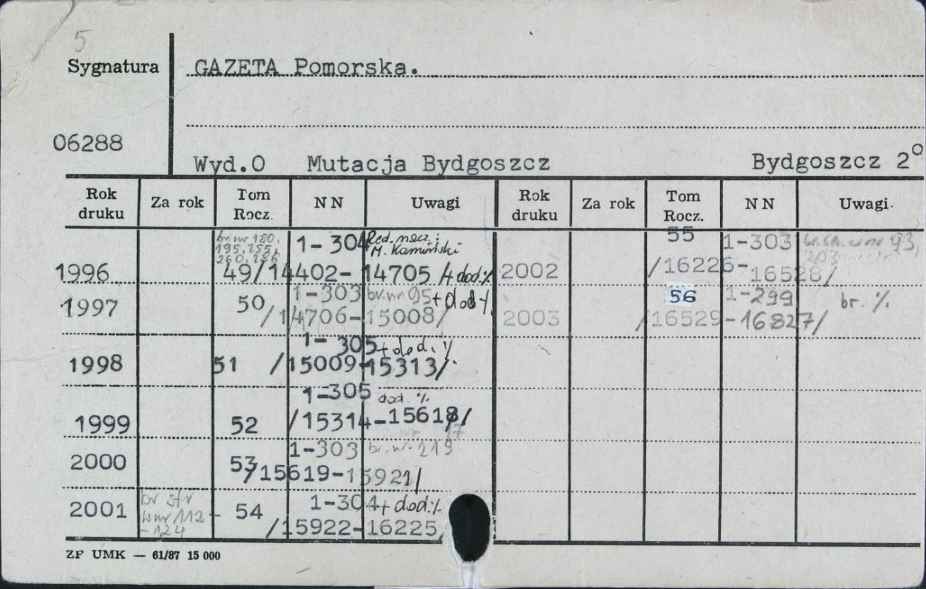 5
Sygnatura GAZETA Pomorska.
06288
Wyd.O Mutacja Bydgoszcz Bydgoszcz 2°
Rok druku Za rok Tom Rocz. NN Uwagi Rok druku Za rok Tom Rocz. NN Uwagi
br. nr 180, 195, 255, 260, 286 1-304 Red. nacz. i M. Kamiński 55 1-303 93,
1996 49/14402-14705 /+dod.% 2002 /16226-16528/
1997 50 1-303 br. nr 95 + dod % 56 1-299 br. %
/14706-15008/ 2003 /16529-16827/
1-305 + dod. %
1998 51 /15009-15313/
1-305 dod. %
1999 52 /15314-15618/
17
2000 53 1-303 br. nr 219
/15619-15921/
2001 br str w nr 112 - 124 54 1-304 + dod.%
/15922-16225
ZP UMK — 61/87 15 000